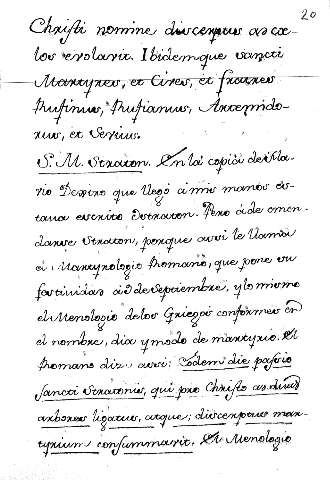 20
Christi nomine discerptus ad cœ-
los evolavit. Ibidemque sancti
Martyres, et Cives, et fratres
Rufinus, Rufianus, Artemido-
rus, et Severus.
S. M. Straton. En la copia de Fla-
vio Dextro que llegó á mis manos es-
taua escrito Ostraton. Pero ade emen-
darse Straton, porque assi le llama
el Martyrologio Romano, que pone su
festividad a 9 de Septiembre, y lo mismo
el Menologio de los Griegos conformes en
el nombre, dia y modo de martyrio. El
Romano diz assi: Eodem die passio
Sancti Stratonis, qui pro Christo ad duas
arbores ligatus, atque; discerptus mar-
tyrium consummavit. El Menologio